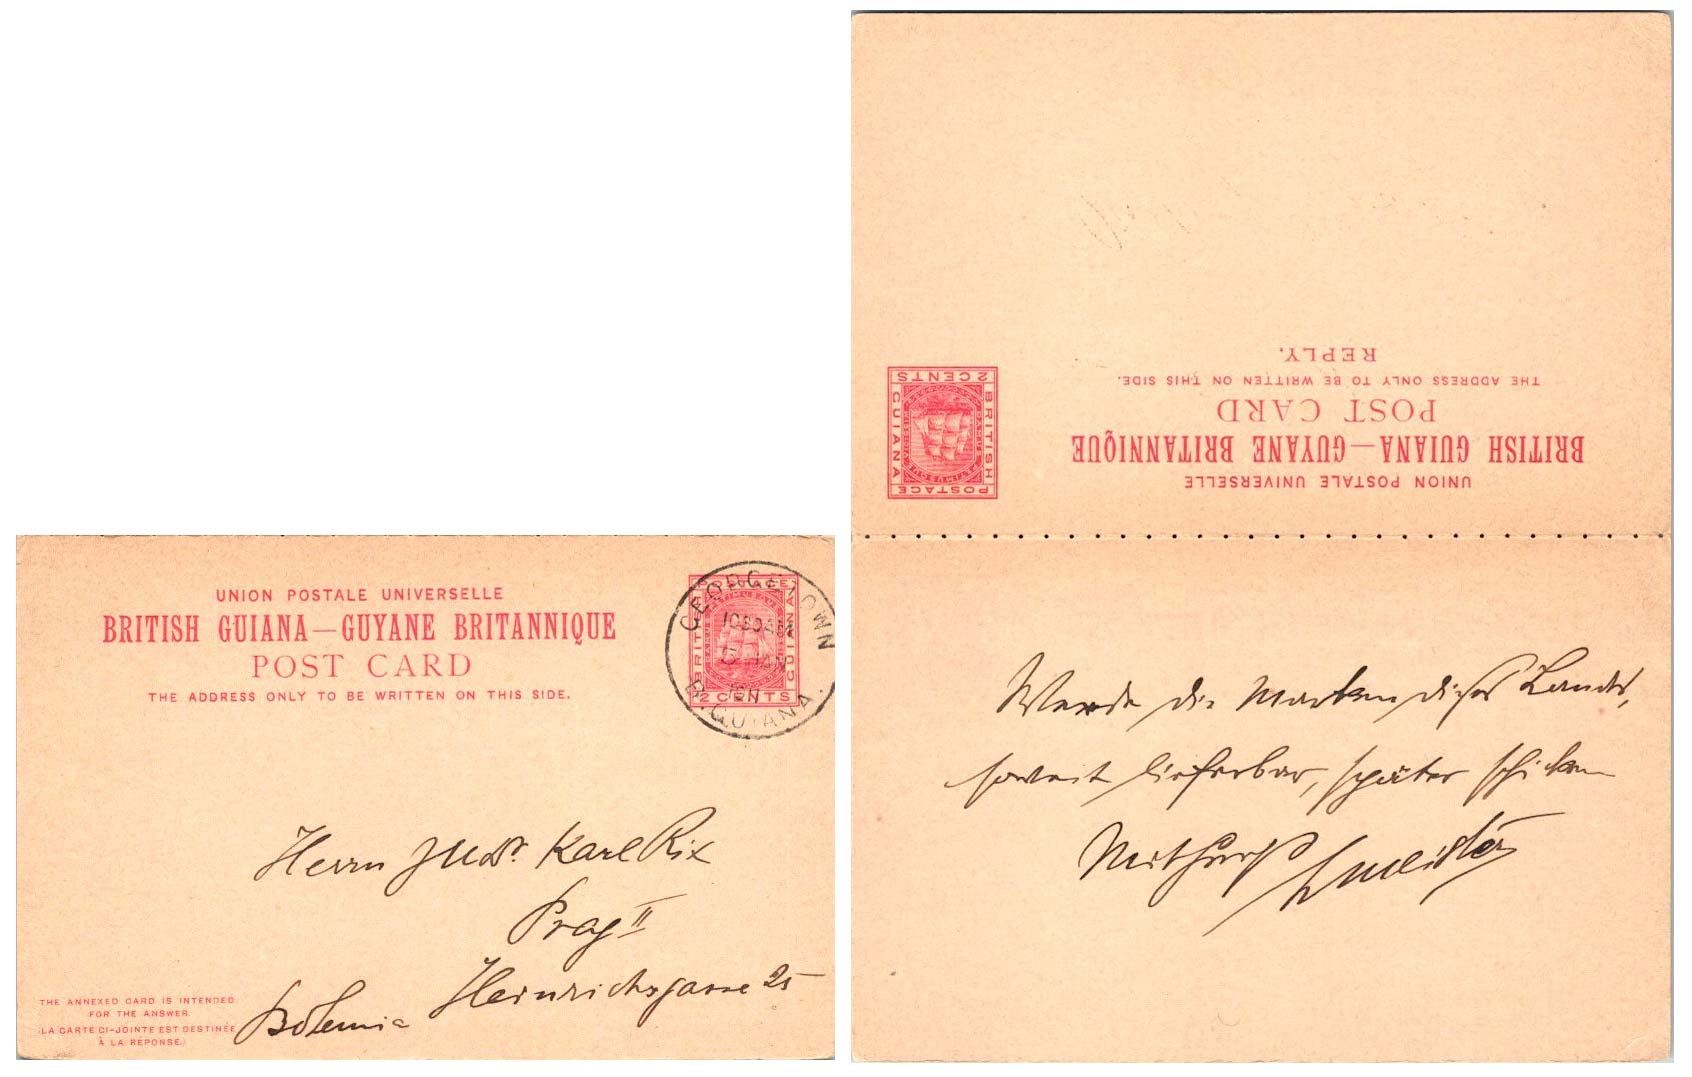 UNION POSTALE UNIVERSELLE
BRITISH GUIANA—GUYANE BRITANNIQUE
POST CARD
THE ADDRESS ONLY TO BE WRITTEN ON THIS SIDE.
POSTAGE
BRITISH
GUIANA
2 CENTS
GEORGETOWN
1030AM
5 JAN
B. GUIANA.
Herrn JUDr. Karl Rix
Prag II
Heinrichsgasse 25
Bohemia
THE ANNEXED CARD IS INTENDED
FOR THE ANSWER.
(LA CARTE CI-JOINTE EST DESTINÉE
À LA RÉPONSE.)
UNION POSTALE UNIVERSELLE
BRITISH GUIANA—GUYANE BRITANNIQUE
POST CARD
THE ADDRESS ONLY TO BE WRITTEN ON THIS SIDE.
REPLY.
POSTAGE
BRITISH
GUIANA
2 CENTS
Werde die Marken dieses Landes,
soweit lieferbar, später schicken
Mit Gruß